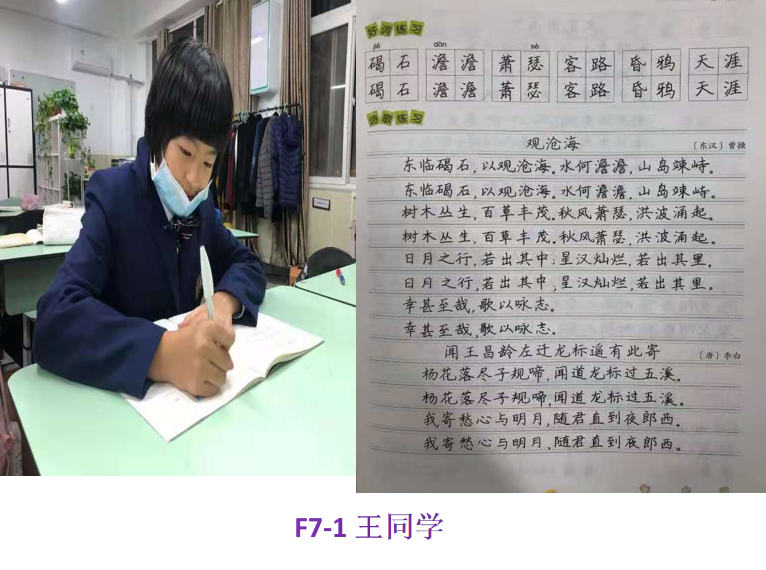 好词练习
jié dàn sè
碣石 澹澹 萧瑟 客路 昏鸦 天涯
碣石 澹澹 萧瑟 客路 昏鸦 天涯
诗歌练习
观沧海 〔东汉〕曹操
东临碣石,以观沧海。水何澹澹,山岛竦峙。
东临碣石,以观沧海。水何澹澹,山岛竦峙。
树木丛生,百草丰茂。秋风萧瑟,洪波涌起。
树木丛生,百草丰茂。秋风萧瑟,洪波涌起。
日月之行,若出其中;星汉灿烂,若出其里。
日月之行,若出其中;星汉灿烂,若出其里。
幸甚至哉,歌以咏志。
幸甚至哉,歌以咏志。
闻王昌龄左迁龙标遥有此寄 〔唐〕李白
杨花落尽子规啼,闻道龙标过五溪。
杨花落尽子规啼,闻道龙标过五溪。
我寄愁心与明月,随君直到夜郎西。
我寄愁心与明月,随君直到夜郎西。
F7-1 王同学